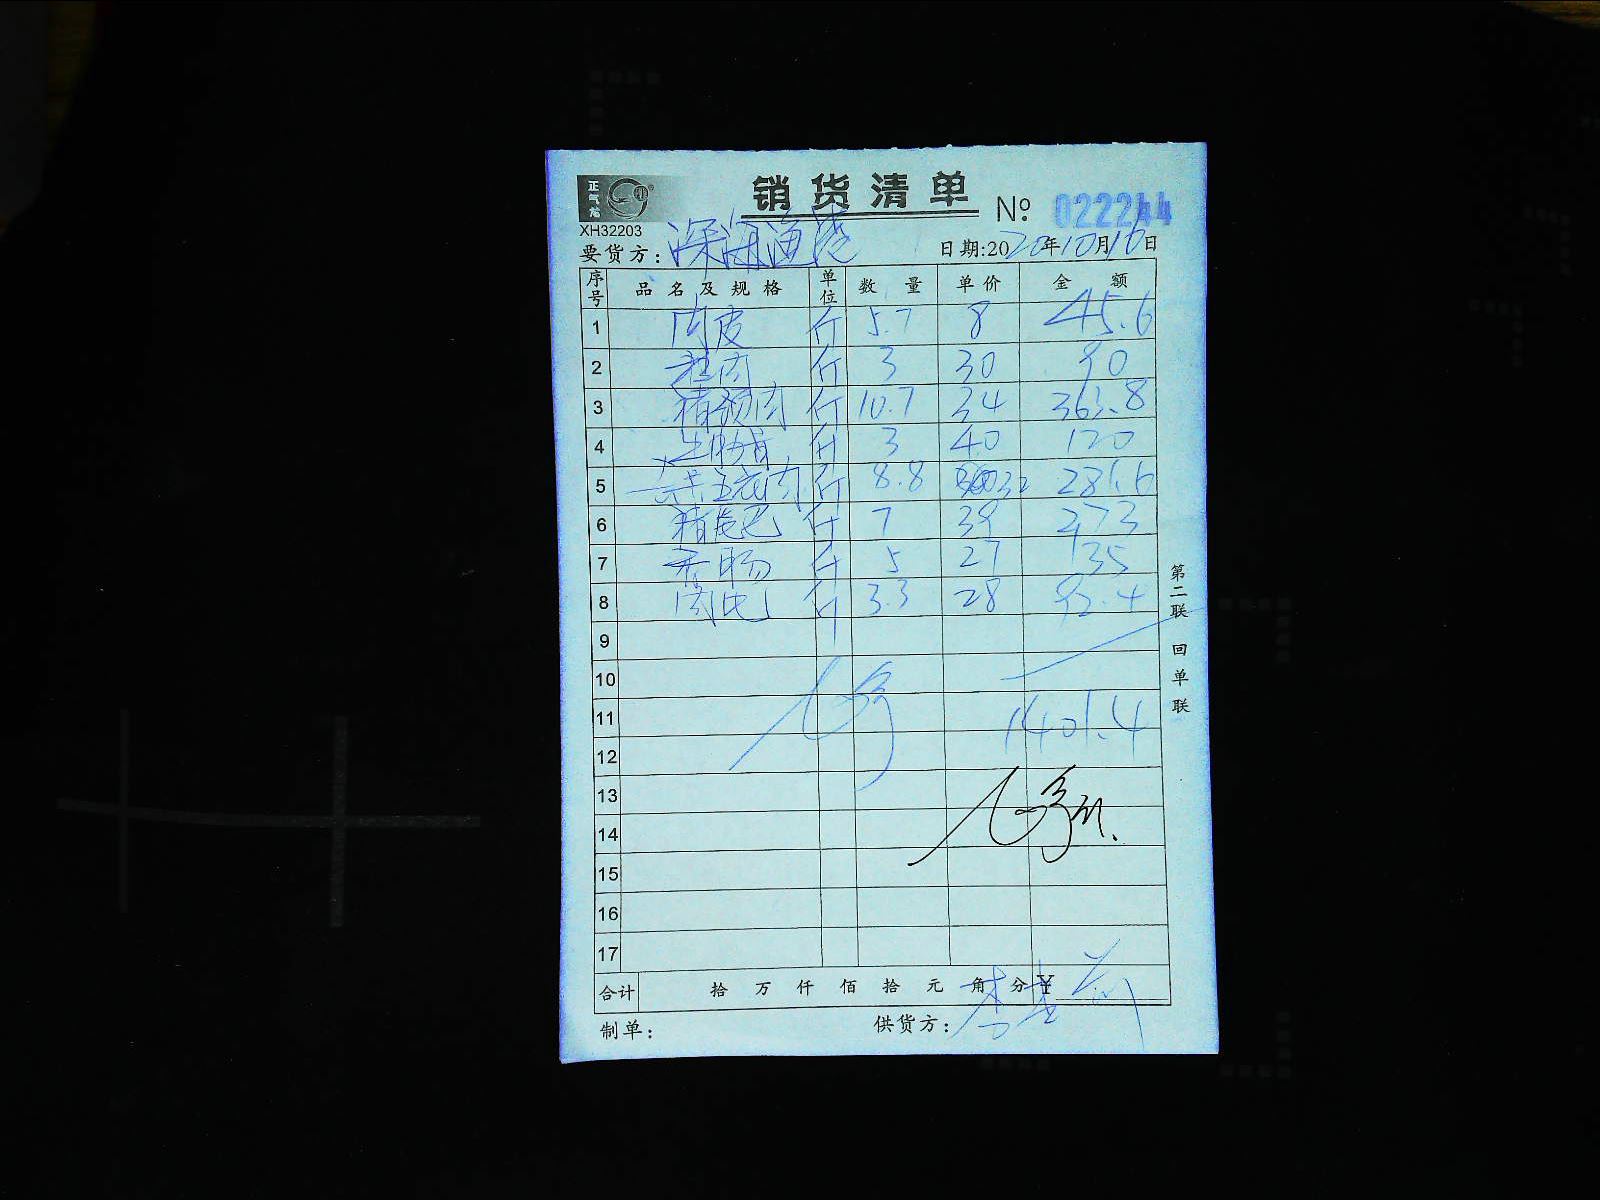 正气龙
销货清单 № 022244
XH32203
要货方：深海渔港 日期:2020年10月16日
序号 品名及规格 单位 数量 单价 金额
1 肉皮 斤 5.7 8 45.6
2 肉 斤 3 30 90
3 猪颈肉 斤 10.7 34 363.8
4 斤 3 40 120
5 五花肉 斤 8.8 32 281.6
6 猪尾巴 斤 7 39 273
7 香肠 斤 5 27 135
8 肉 斤 3.3 28 92.4
9
10
11 1401.4
12
13
14
15
16
17
合计 拾 万 仟 佰 拾 元 角 分 ¥
制单： 供货方：李
第二联 回单联